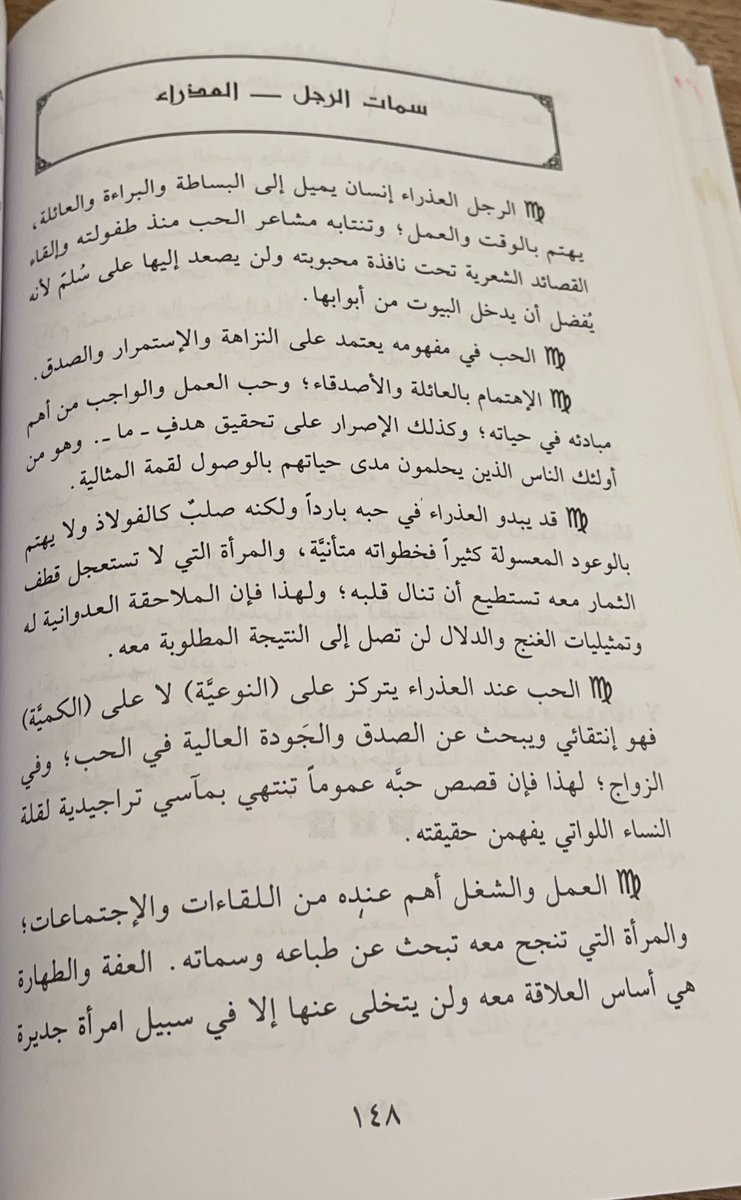 سمات الرجل — العذراء
♍ الرجل العذراء إنسان يميل إلى البساطة والبراءة والعائلة،
يهتم بالوقت والعمل؛ وتنتابه مشاعر الحب منذ طفولته وإلقاء
القصائد الشعرية تحت نافذة محبوبته ولن يصعد إليها على سُلمّ لأنه
يُفضل أن يدخل البيوت من أبوابها.
♍ الحب في مفهومه يعتمد على النزاهة والإستمرار والصدق.
♍ الإهتمام بالعائلة والأصدقاء؛ وحب العمل والواجب من أهم
مبادئه في حياته؛ وكذلك الإصرار على تحقيق هدفٍ ـ ما ـ. وهو من
أولئك الناس الذين يحلمون مدى حياتهم بالوصول لقمة المثالية.
♍ قد يبدو العذراء في حبه بارداً ولكنه صلبٌ كالفولاذ ولا يهتم
بالوعود المعسولة كثيراً فخطواته متأنيَّة، والمرأة التي لا تستعجل قطف
الثمار معه تستطيع أن تنال قلبه؛ ولهذا فإن الملاحقة العدوانية له
وتمثيليات الغنج والدلال لن تصل إلى النتيجة المطلوبة معه.
♍ الحب عند العذراء يتركز على (النوعيَّة) لا على (الكميَّة)
فهو إنتقائي ويبحث عن الصدق والجَودة العالية في الحب؛ وفي
الزواج؛ لهذا فإن قصص حبَّه عموماً تنتهي بمآسي تراجيدية لقلة
النساء اللواتي يفهمن حقيقته.
♍ العمل والشغل أهم عنده من اللقاءات والإجتماعات؛
والمرأة التي تنجح معه تبحث عن طباعه وسماته. العفة والطهارة
هي أساس العلاقة معه ولن يتخلى عنها إلا في سبيل امرأة جديرة
١٤٨